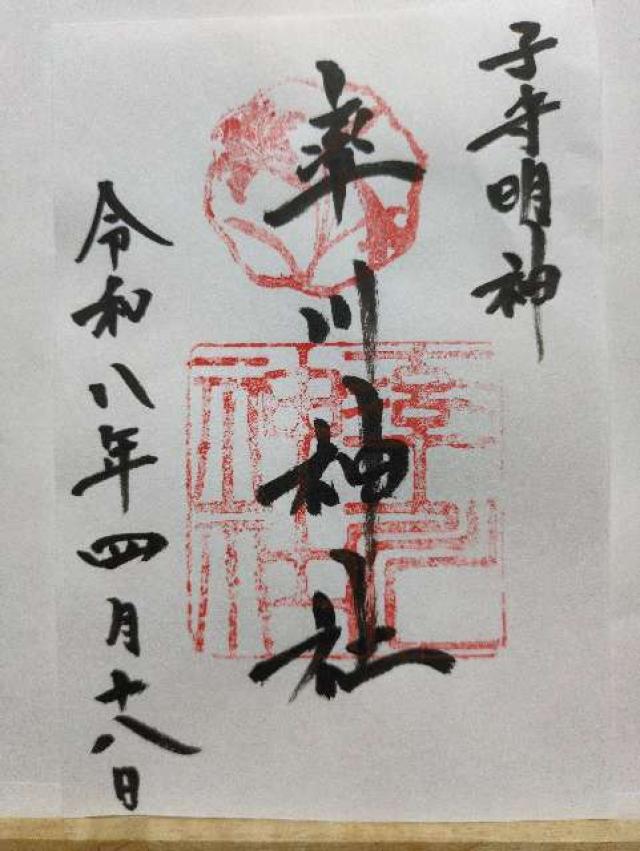 子守明神
率川神社
令和八年四月十八日